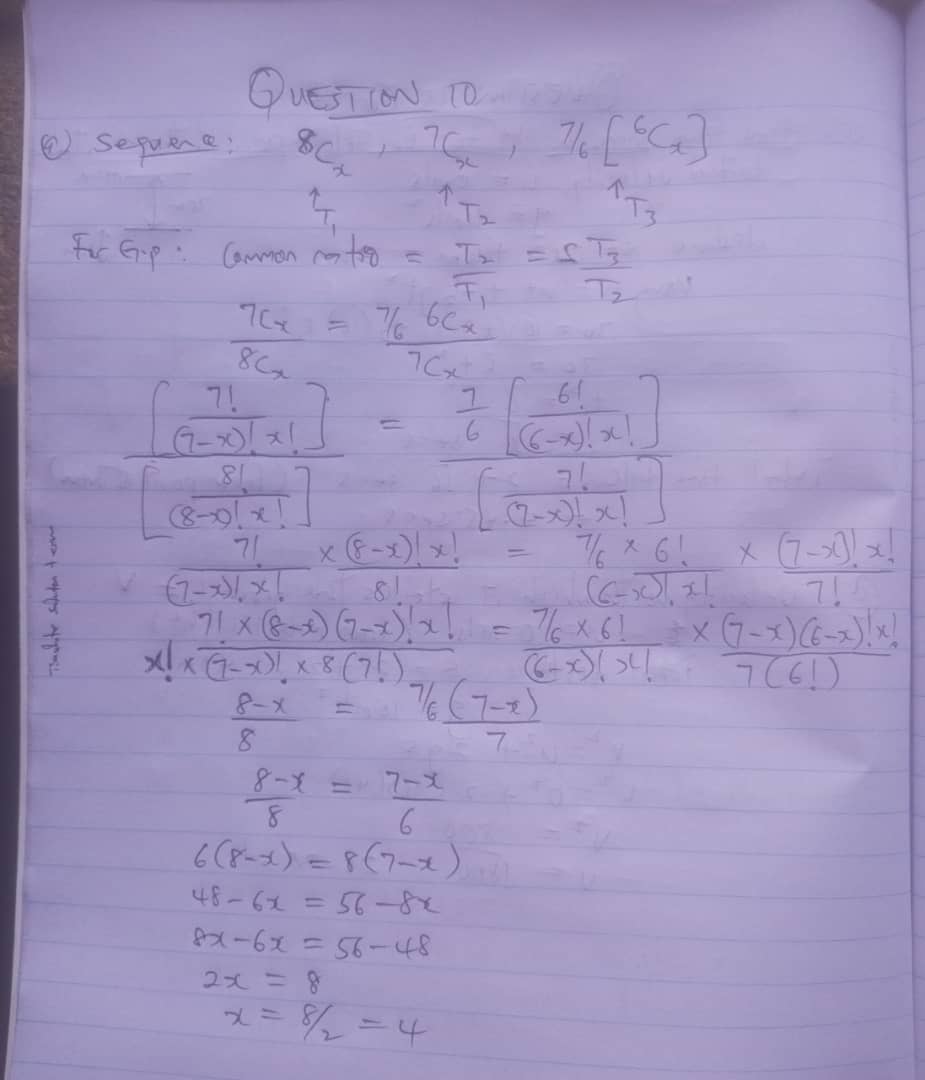 QUESTION 10
a) Sequence: 8Cx, 7Cx, 7/6 [6Cx]
↑T1 ↑T2 ↑T3
For G.p: Common ratio = T2/T1 = T3/T2
7Cx/8Cx = 7/6 6Cx/7Cx
[7!/(7-x)! x!]/[8!/(8-x)! x!] = 7/6 [6!/(6-x)! x!]/[7!/(7-x)! x!]
7!/(7-x)! x! × (8-x)! x!/8! = 7/6 × 6!/(6-x)! x! × (7-x)! x!/7!
7! × (8-x)(7-x)! x!/x! × (7-x)! × 8(7!) = 7/6 × 6!/(6-x)! x! × (7-x)(6-x)! x!/7(6!)
8-x/8 = 7/6 (7-x)/7
8-x/8 = 7-x/6
6(8-x) = 8(7-x)
48-6x = 56-8x
8x-6x = 56-48
2x = 8
x = 8/2 = 4